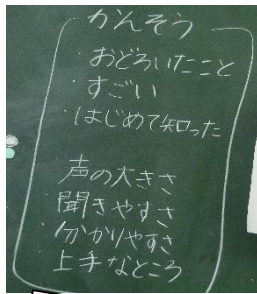 かんそう
・おどろいたこと
・すごい
・はじめて知った
声の大きさ
聞きやすさ
分かりやすさ
上手なところ